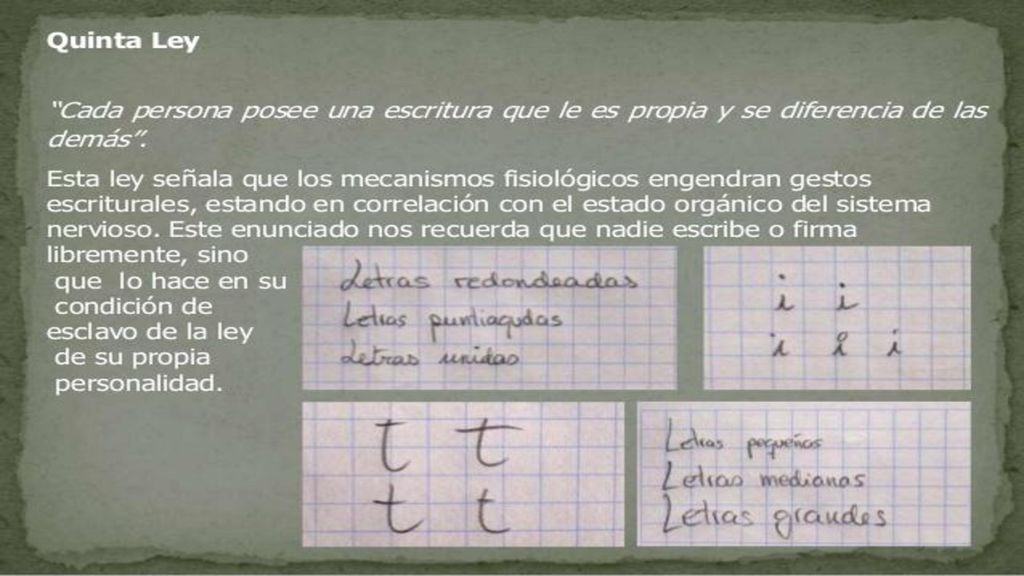 Quinta Ley
“Cada persona posee una escritura que le es propia y se diferencia de las
demás”.
Esta ley señala que los mecanismos fisiológicos engendran gestos
escriturales, estando en correlación con el estado orgánico del sistema
nervioso. Este enunciado nos recuerda que nadie escribe o firma
libremente, sino
que lo hace en su
condición de
esclavo de la ley
de su propia
personalidad.
Letras redondeadas
Letras puntiagudas
Letras unidas
i i
i i i
t t
t t
Letras pequeñas
Letras medianas
Letras grandes